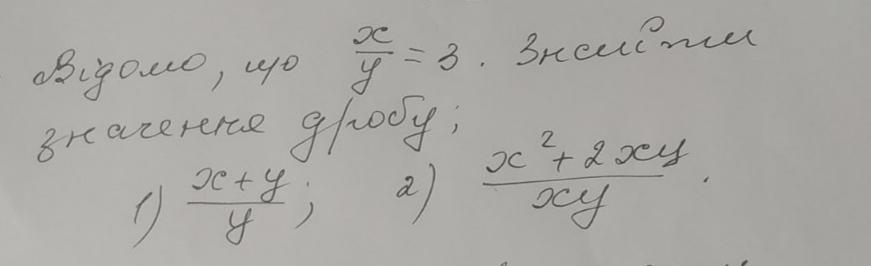 Відомо, що x/y = 3. Знайти
значення дробу;
1) (x+y)/y; 2) (x²+2xy)/(xy).